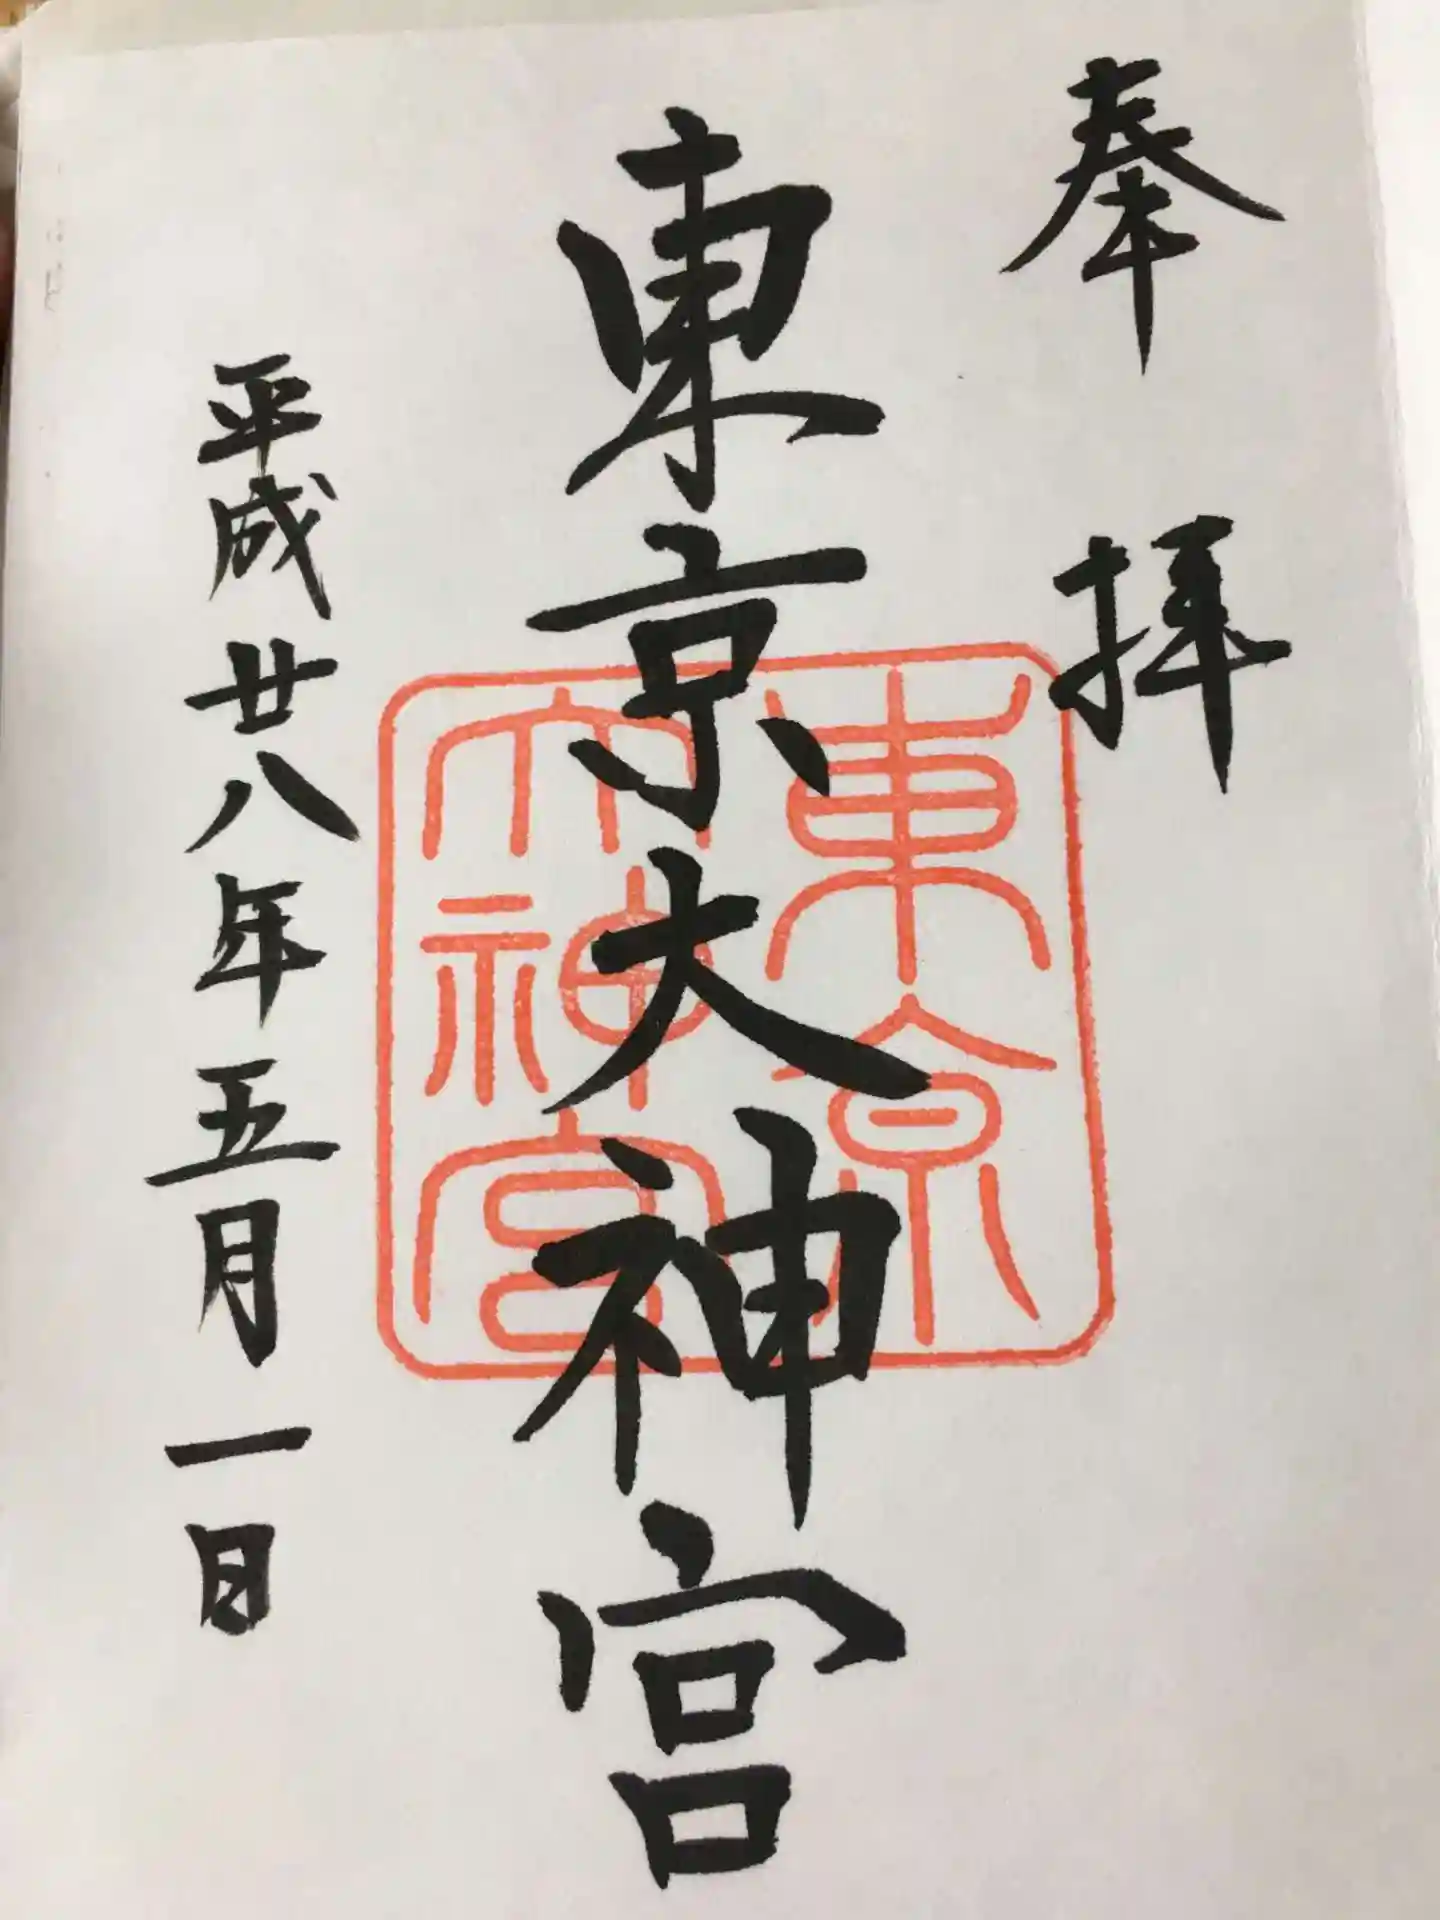 奉拝
東京大神宮
平成廿八年五月一日
東京
大神宮